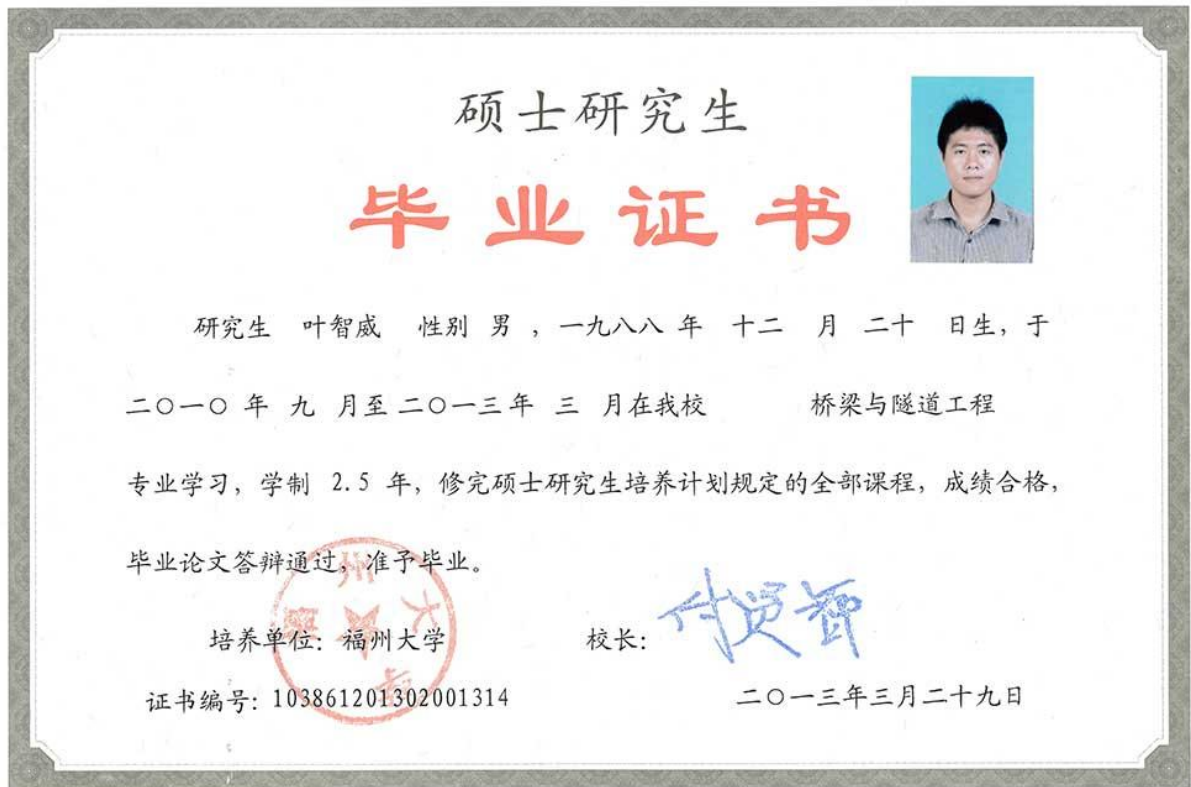 硕士研究生
毕业证书
研究生 叶智威 性别 男 ，一九八八 年 十二 月 二十 日生，于
二○一○ 年 九 月至 二○一三 年 三 月在我校 桥梁与隧道工程
专业学习，学制 2.5 年，修完硕士研究生培养计划规定的全部课程，成绩合格，
毕业论文答辩通过，准予毕业。
福州大学
培养单位：福州大学 校长：
证书编号：103861201302001314 二○一三年三月二十九日